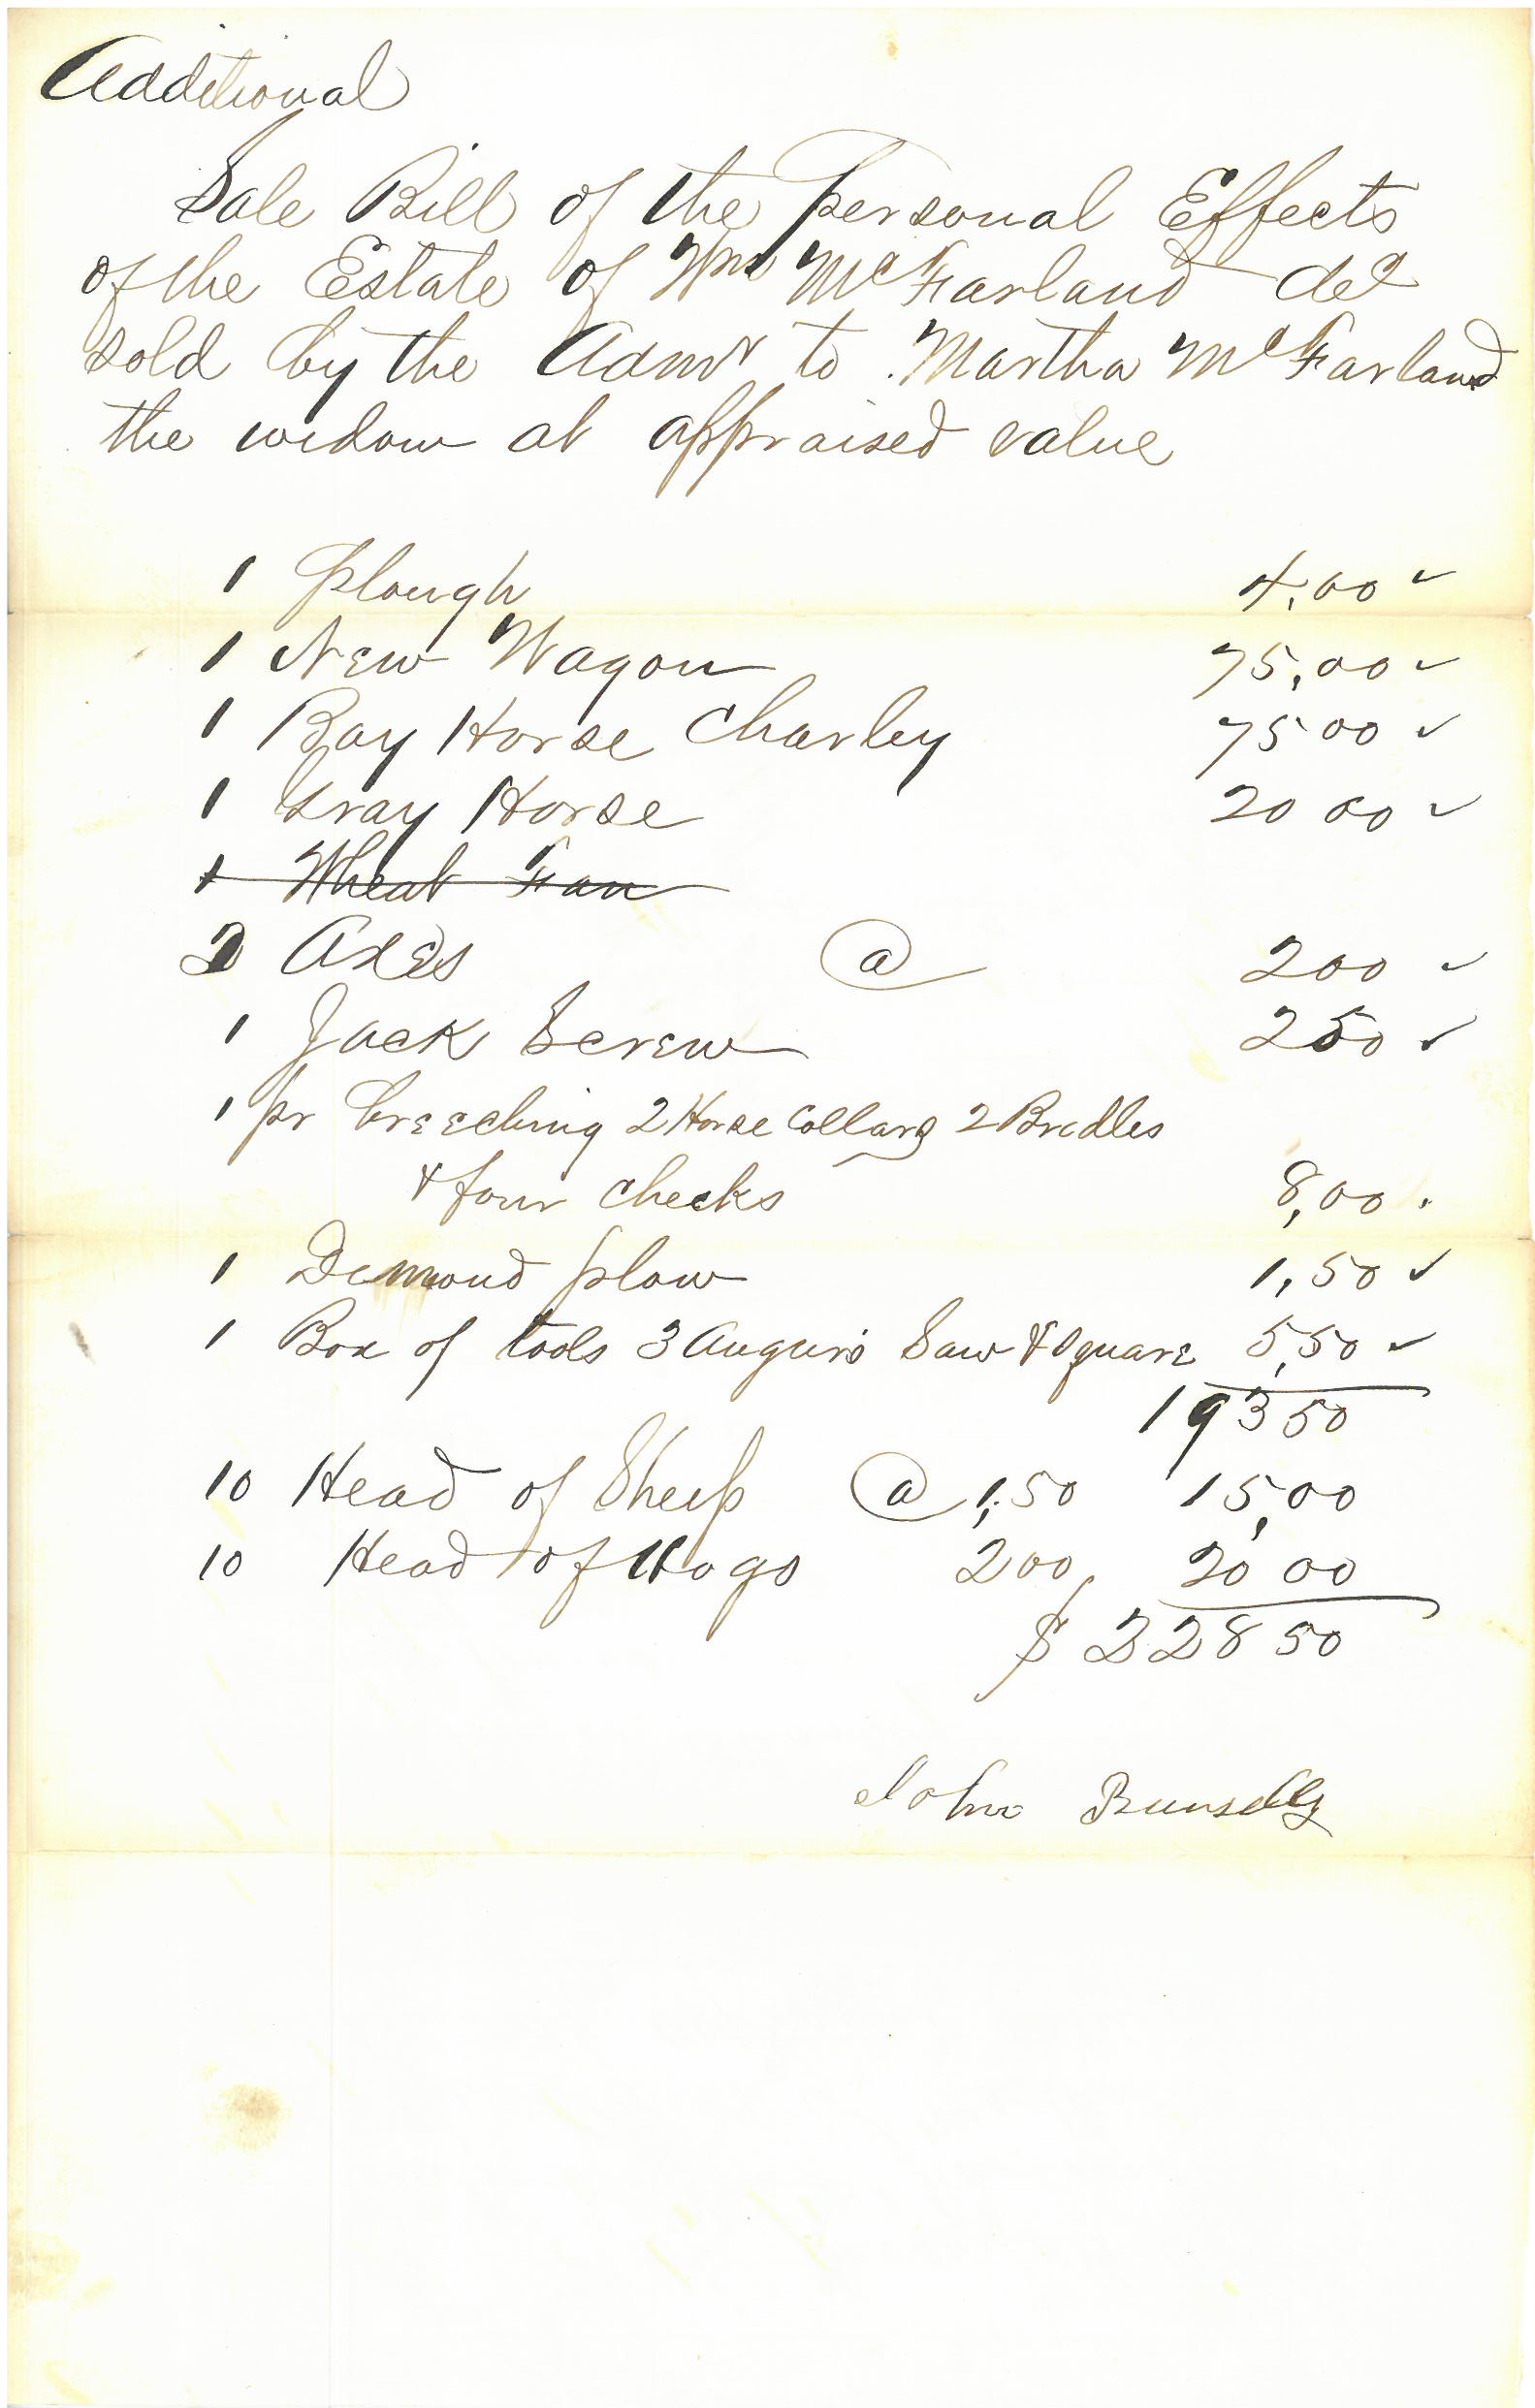 Additional
Sale Bill of the Personal Effects
of the Estate of Wm McFarland decd
sold by the Admr to Martha McFarland
the widow at appraised value
1 Plough 4,00 ✓
1 New Wagon 75,00 ✓
1 Bay Horse Charley 75 00 ✓
1 Gray Horse 20 00 ✓
1 Wheat Fan
2 Axes @ 200 ✓
1 Jack Screw 250 ✓
1 pr breeching 2 Horse Collars 2 Bridles
& four checks 8,00 .
1 Dimond plow 1,50 ✓
1 Box of tools 3 Augurs Saw & Square 5,50 ✓
193 50
10 Head of Sheep @ 1,50 15,00
10 Head of Hogs 200 20 00
$ 228 50
John